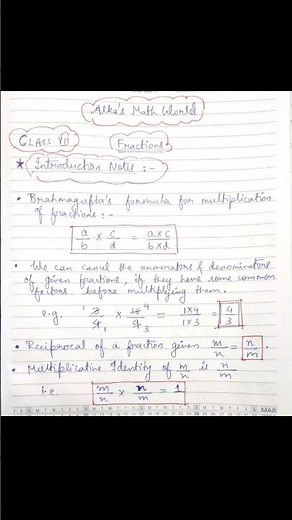 Alka's Math World
CLASS VII
Fractions
★ Introduction Notes :-
• Brahmagupta's formula for multiplication
of fractions :-
a/b × c/d = a×c/b×d
• We can cancel the numerators & denominators
of given fractions, if they have some common
factors before multiplying them.
e.g. = 1×4/1×3 = 4/3
• Reciprocal of a fraction given m/n = n/m.
• Multiplicative Identity of m/n is n/m
i.e. m/n × n/m = 1